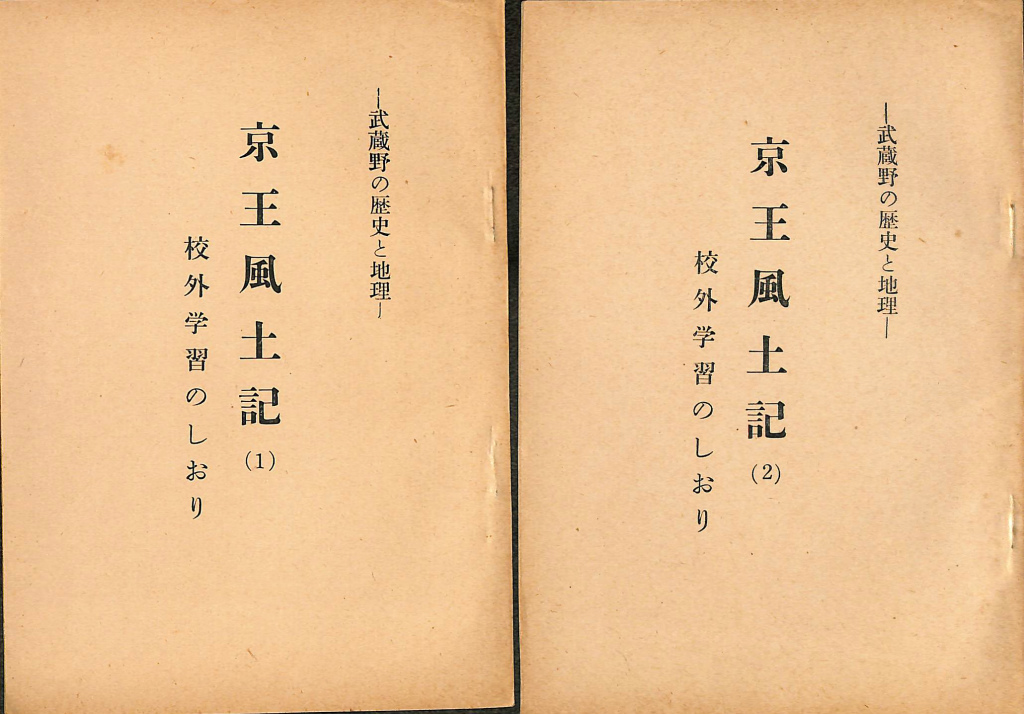 ―武蔵野の歴史と地理―
京王風土記(1)
校外学習のしおり
―武蔵野の歴史と地理―
京王風土記(2)
校外学習のしおり